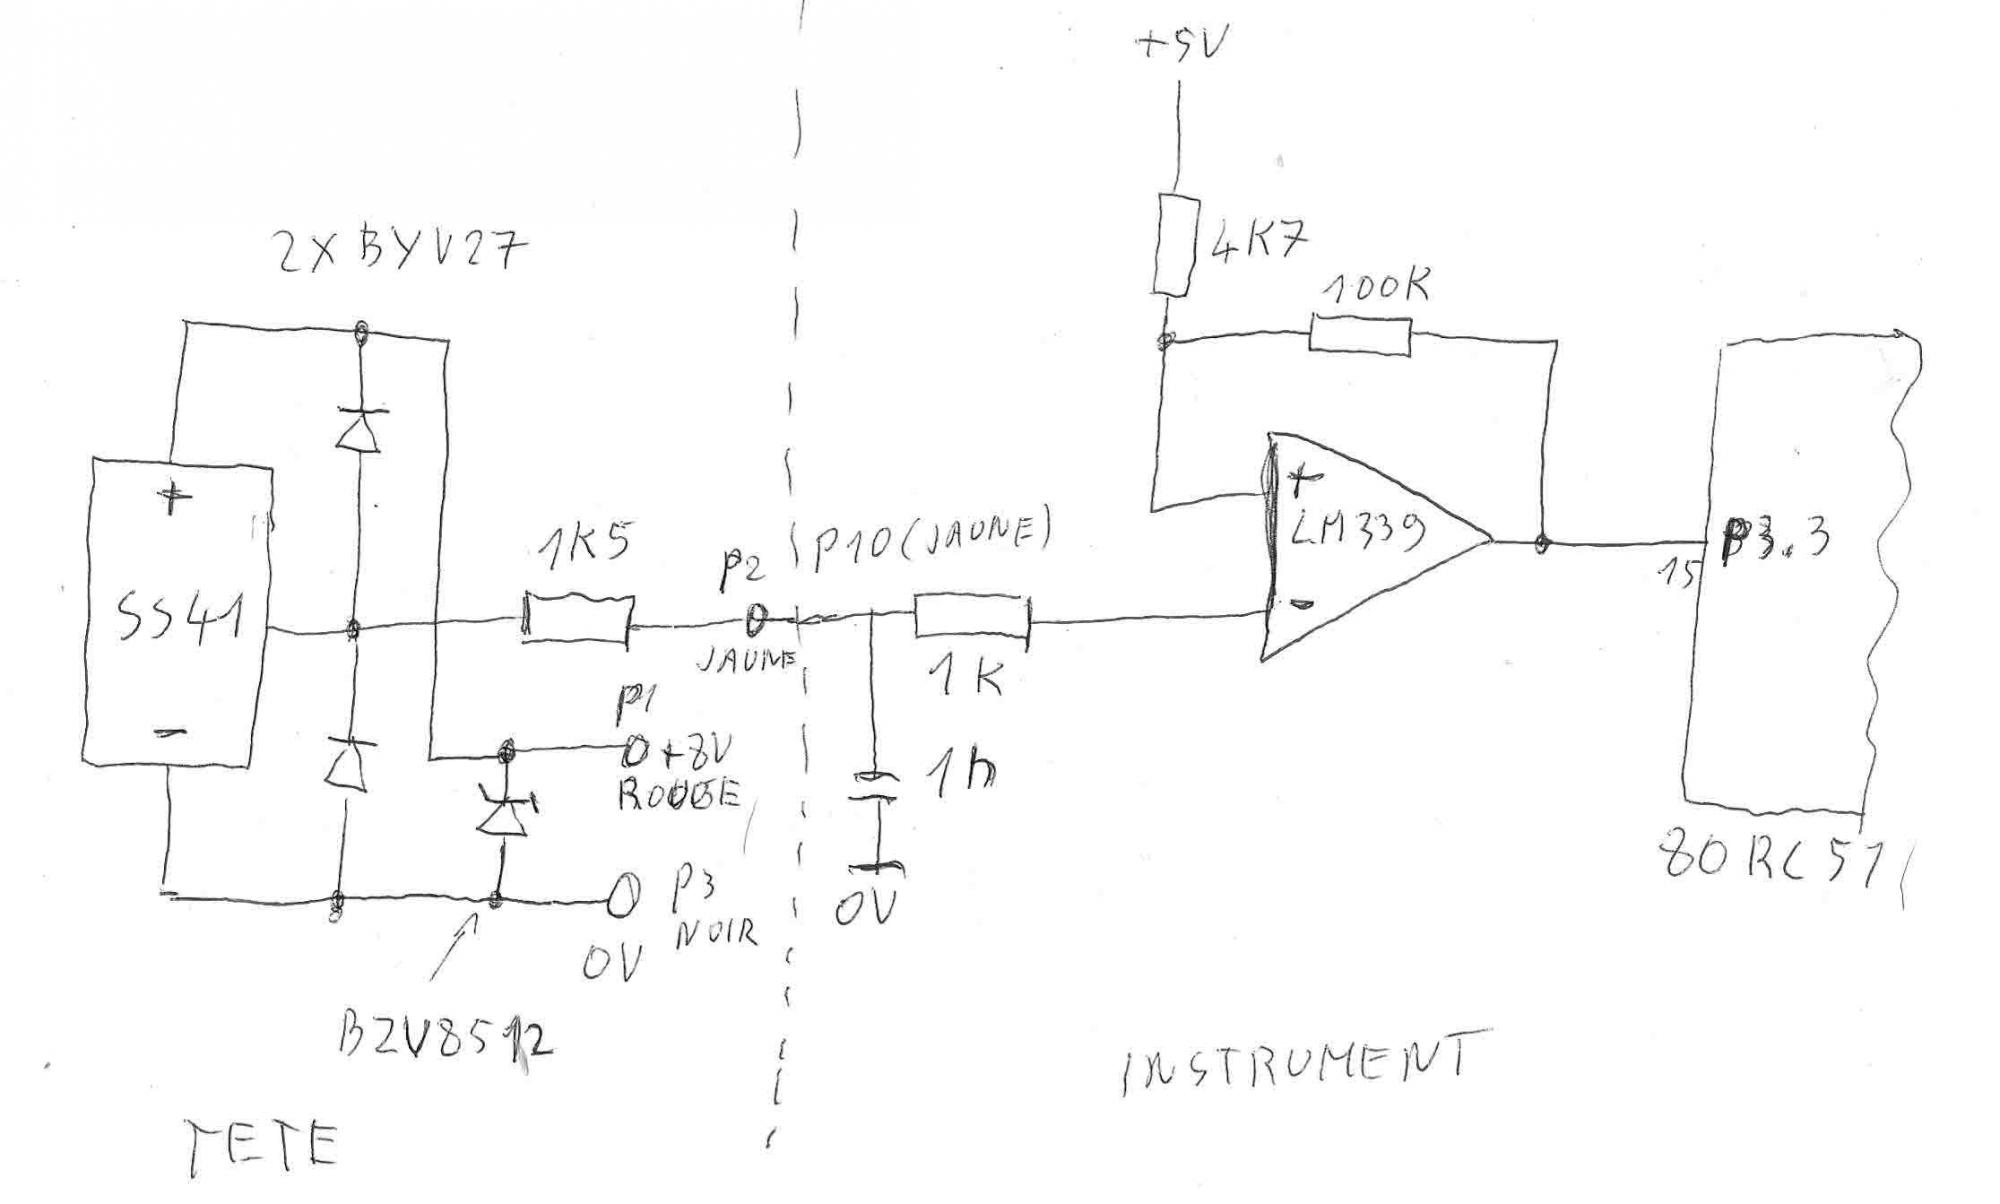 +5V
4K7
100K
2XBYV27
+
SS41
-
1K5
P2
JAUNE
P10(JAUNE)
1K
+
LM339
-
P3.3
15
P1
+8V
ROUGE
1n
0V
80RC51
P3
NOIR
0V
BZV8512
INSTRUMENT
TETE